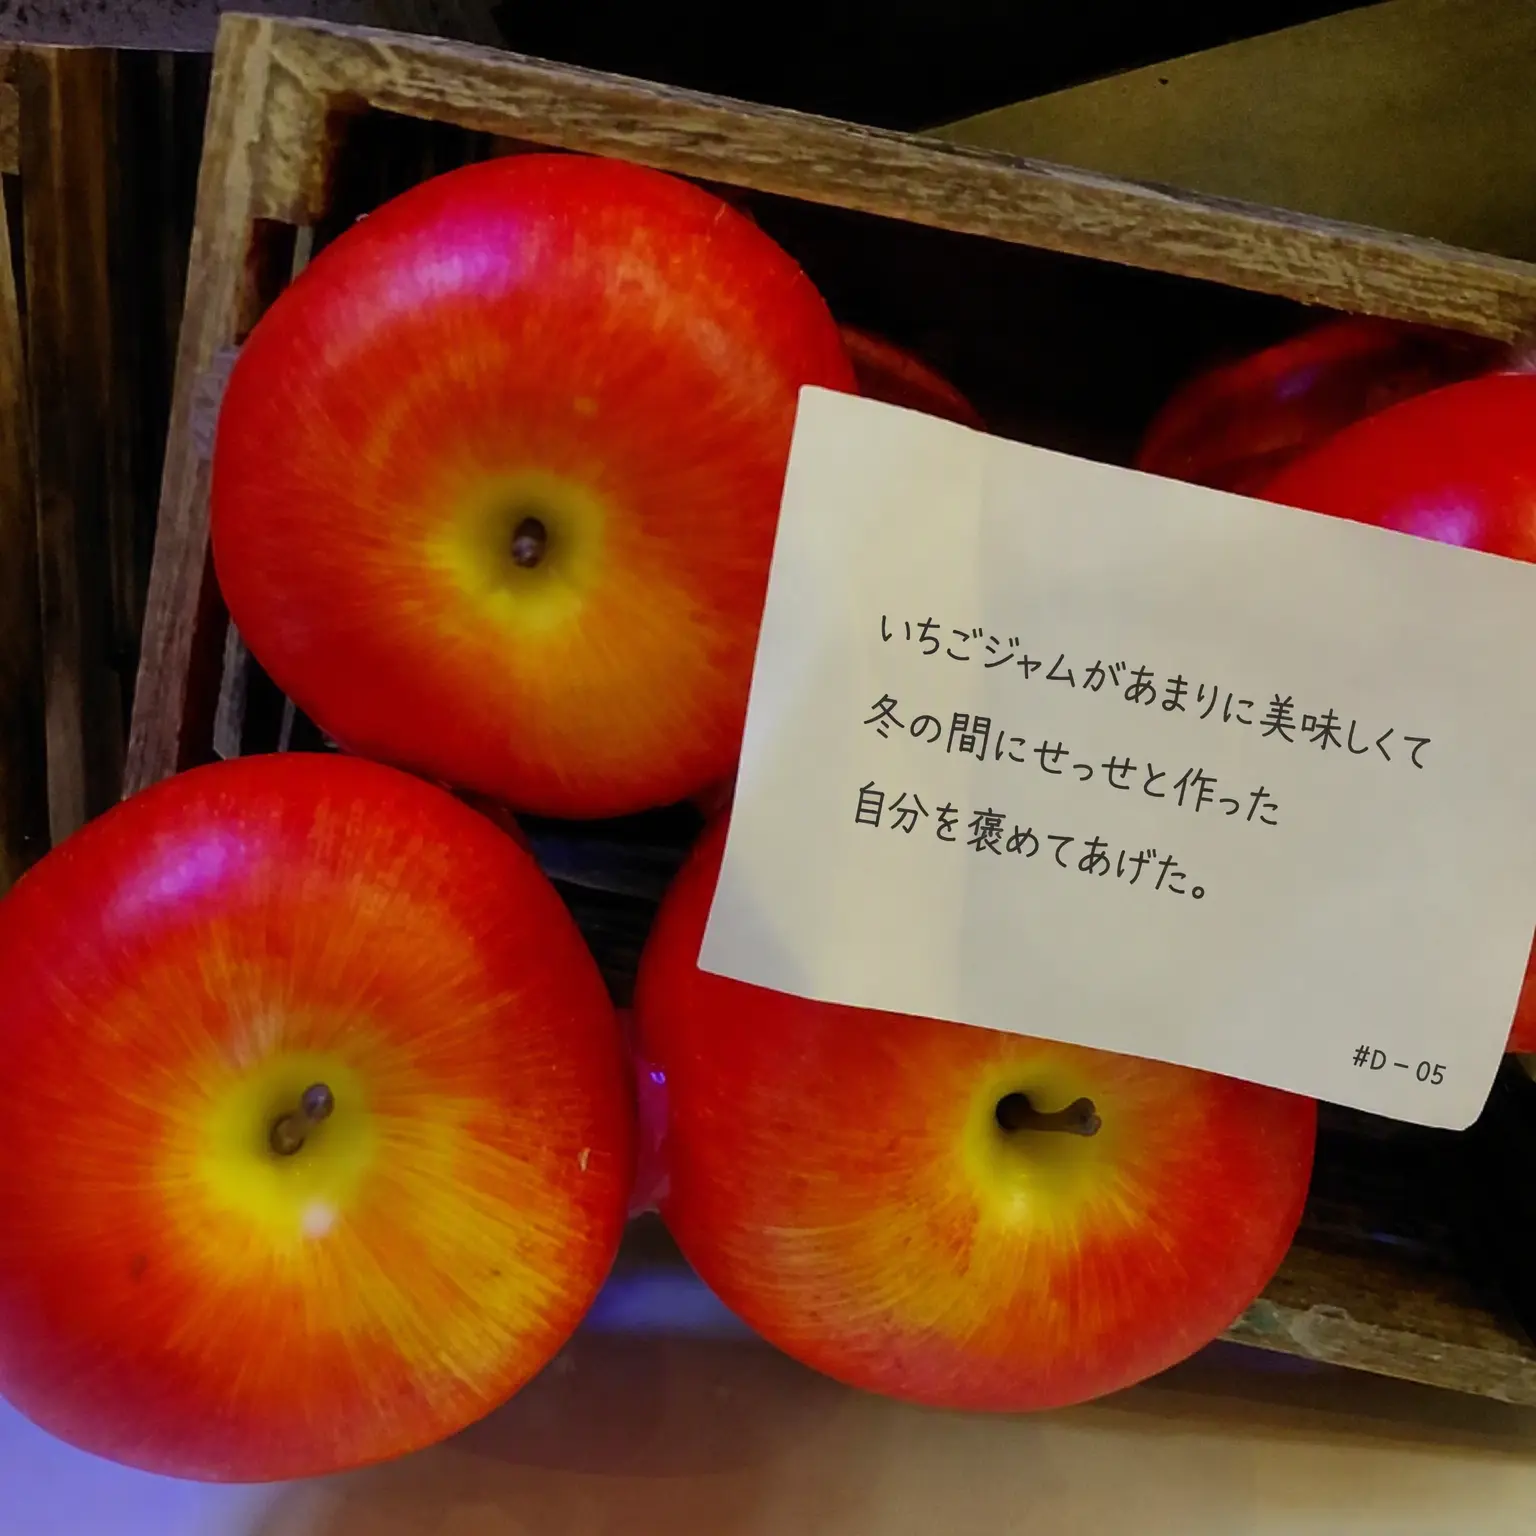 いちごジャムがあまりに美味しくて
冬の間にせっせと作った
自分を褒めてあげた。
#D-05